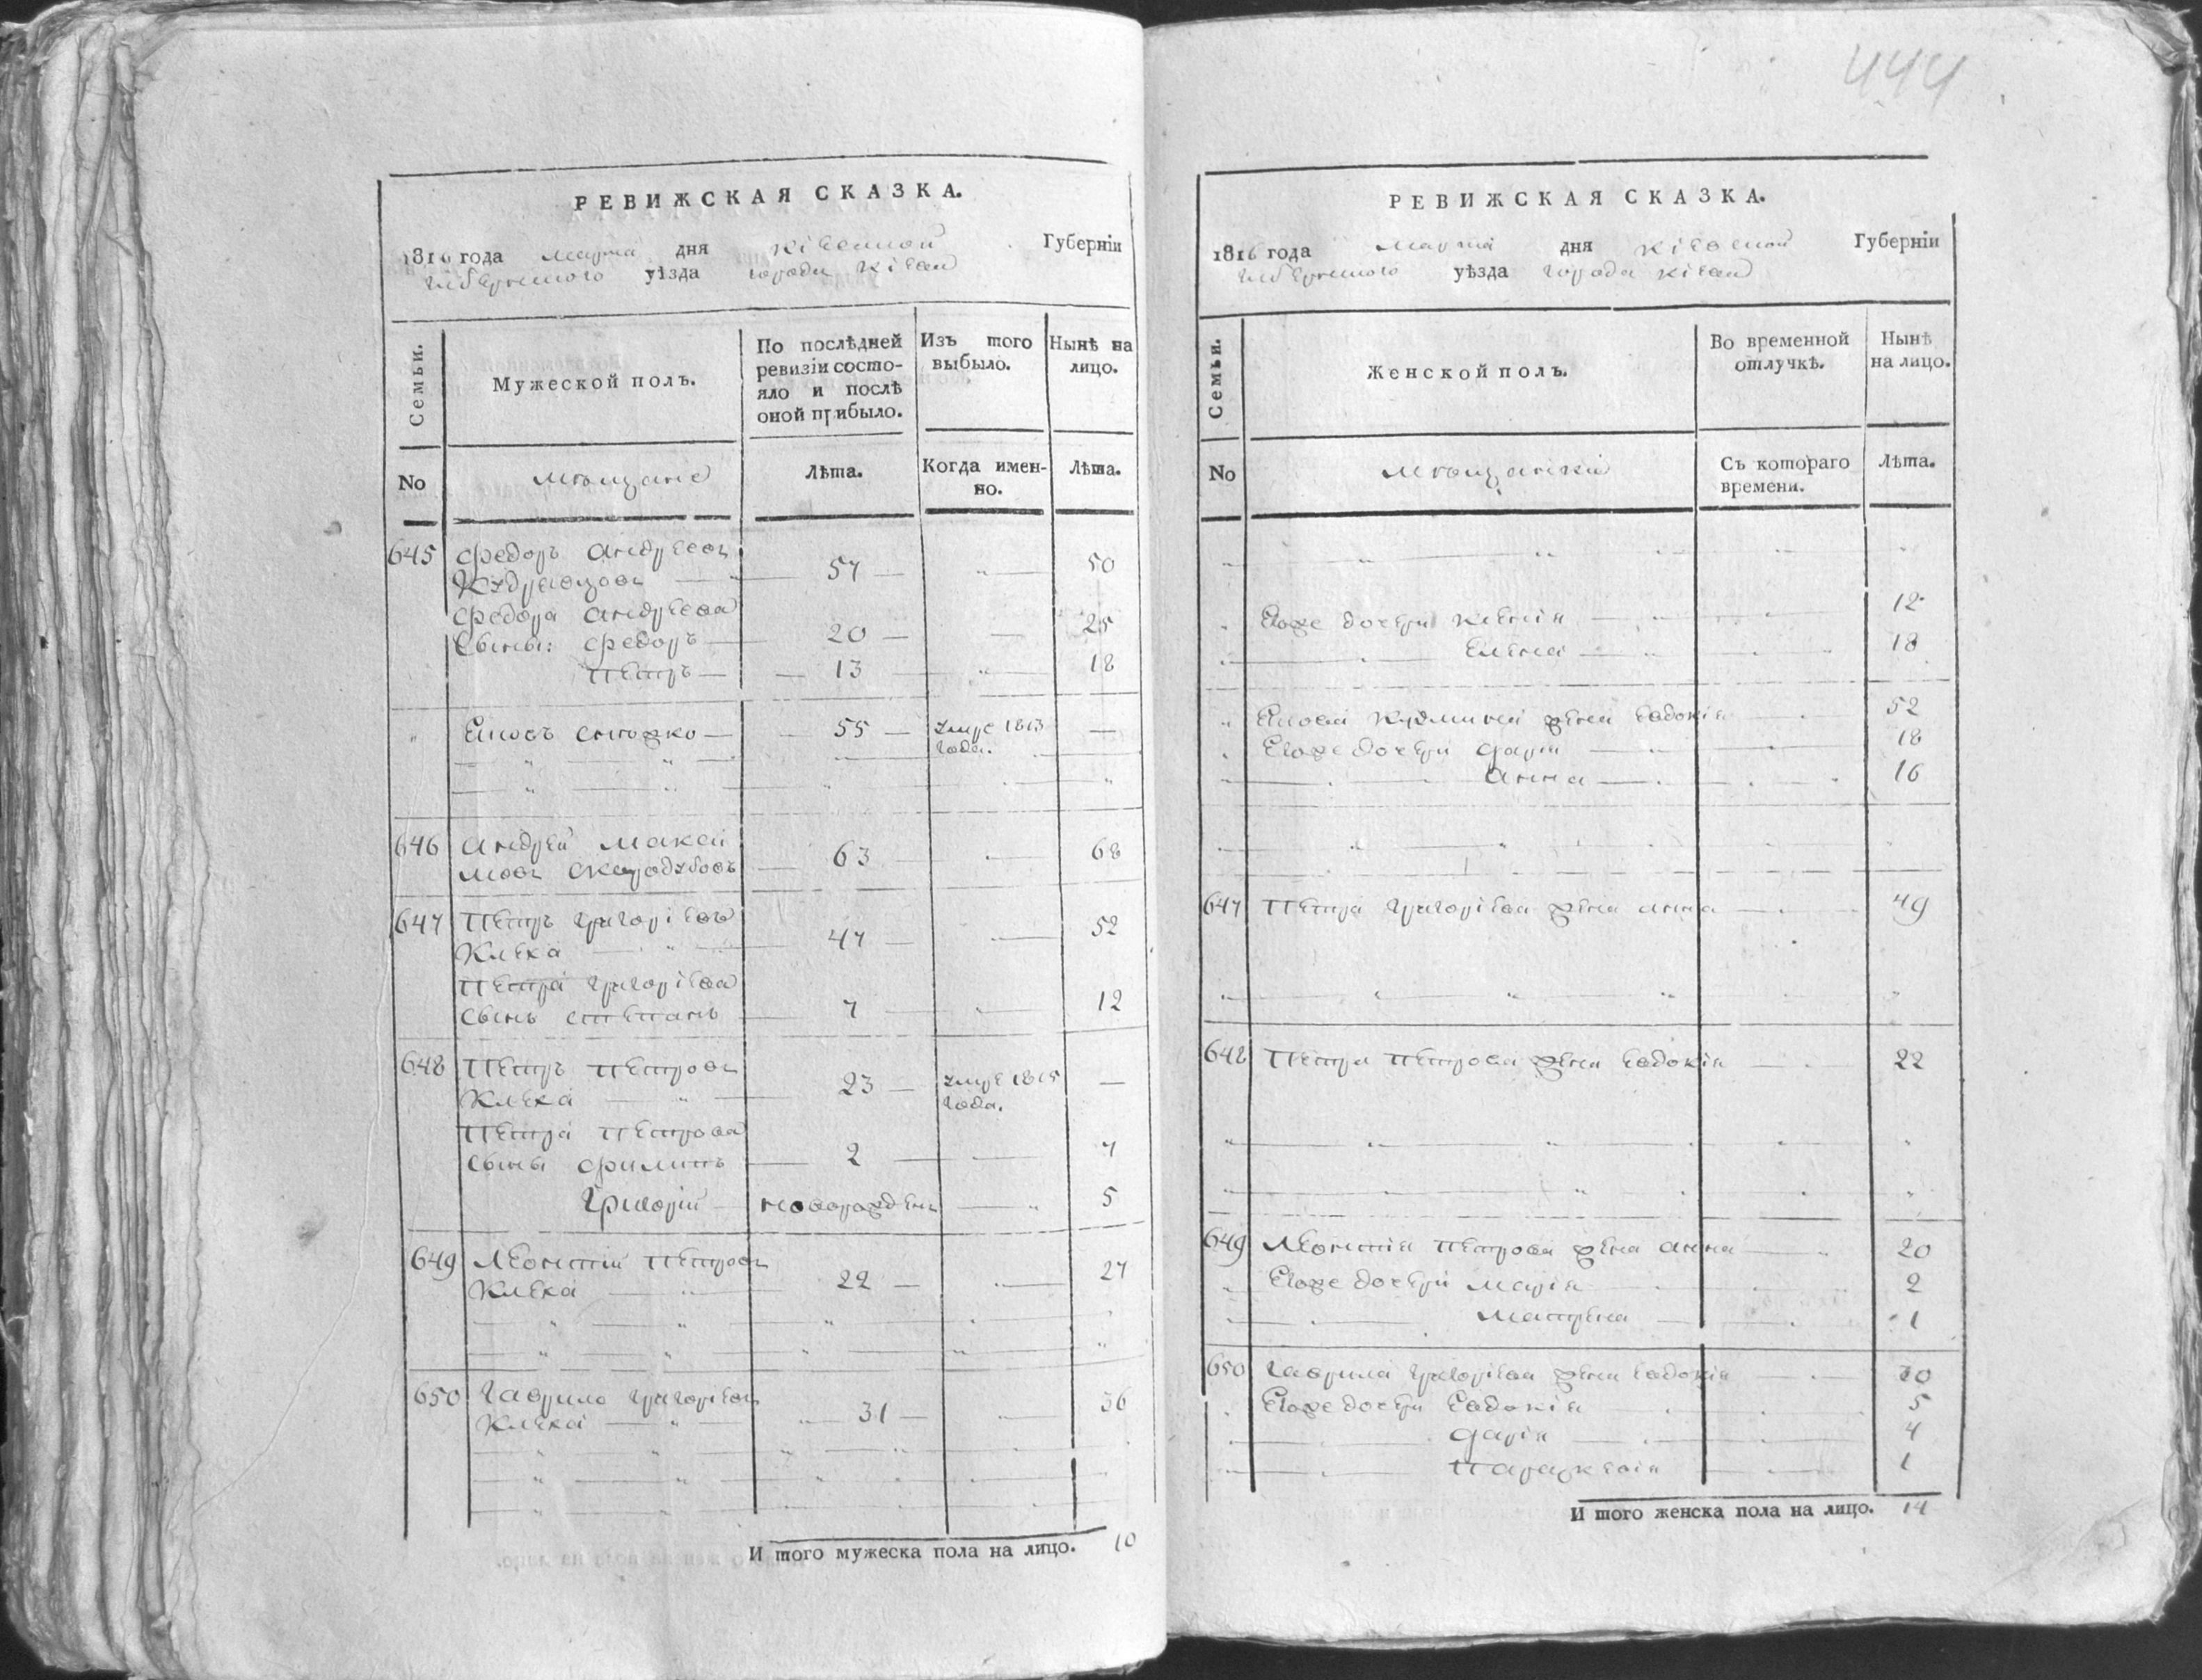 444
РЕВИЖСКАЯ СКАЗКА.
1816 года марта дня кіевской Губерніи
уѣзда города кіева
Семьи. Мужеской полъ. По послѣдней ревизіи состояло и послѣ оной прибыло. Изъ того выбыло. Нынѣ на лицо.
No мещане Лѣта. Когда именно. Лѣта.
645 Федоръ андреевъ
Кудравцовъ 57 50
Федора андреева
Сыны: Федоръ 20 25
Петръ 13 18
55 умре 1813
года.
646 андрей макси
мовъ 63 68
647 Петръ григоріевъ
Клека 47 52
Петра григоріева
Сынъ степанъ 7 12
648 Петръ Петровъ
Клека 23 умре 1815
года.
Петра Петрова
Сыны филипъ 2 7
Григорій новорожденъ 5
649 Леонтій Петровъ
Клека 22 27
650 Гаврило григоріевъ
Клека 31 36
И того мужеска пола на лицо. 10
РЕВИЖСКАЯ СКАЗКА.
1816 года марта дня кіевской Губерніи
уѣзда города кіева
Семьи. Женской полъ. Во временной отлучкѣ. Нынѣ на лицо.
No мещанки Съ котораго времени. Лѣта.
Егоже дочери 12
Елена 18
жена Евдокія 52
Егоже дочери Дарія 18
анна 16
647 Петра григоріева жена анна 49
648 Петра Петрова жена Евдокія 22
649 Леонтія Петрова жена анна 20
Егоже дочери марія 2
матрена 1
650 Гаврила григоріева жена Евдокія
Егоже дочери Евдокія 5
Дарія 4
Параскевія 1
И того женска пола на лицо. 14